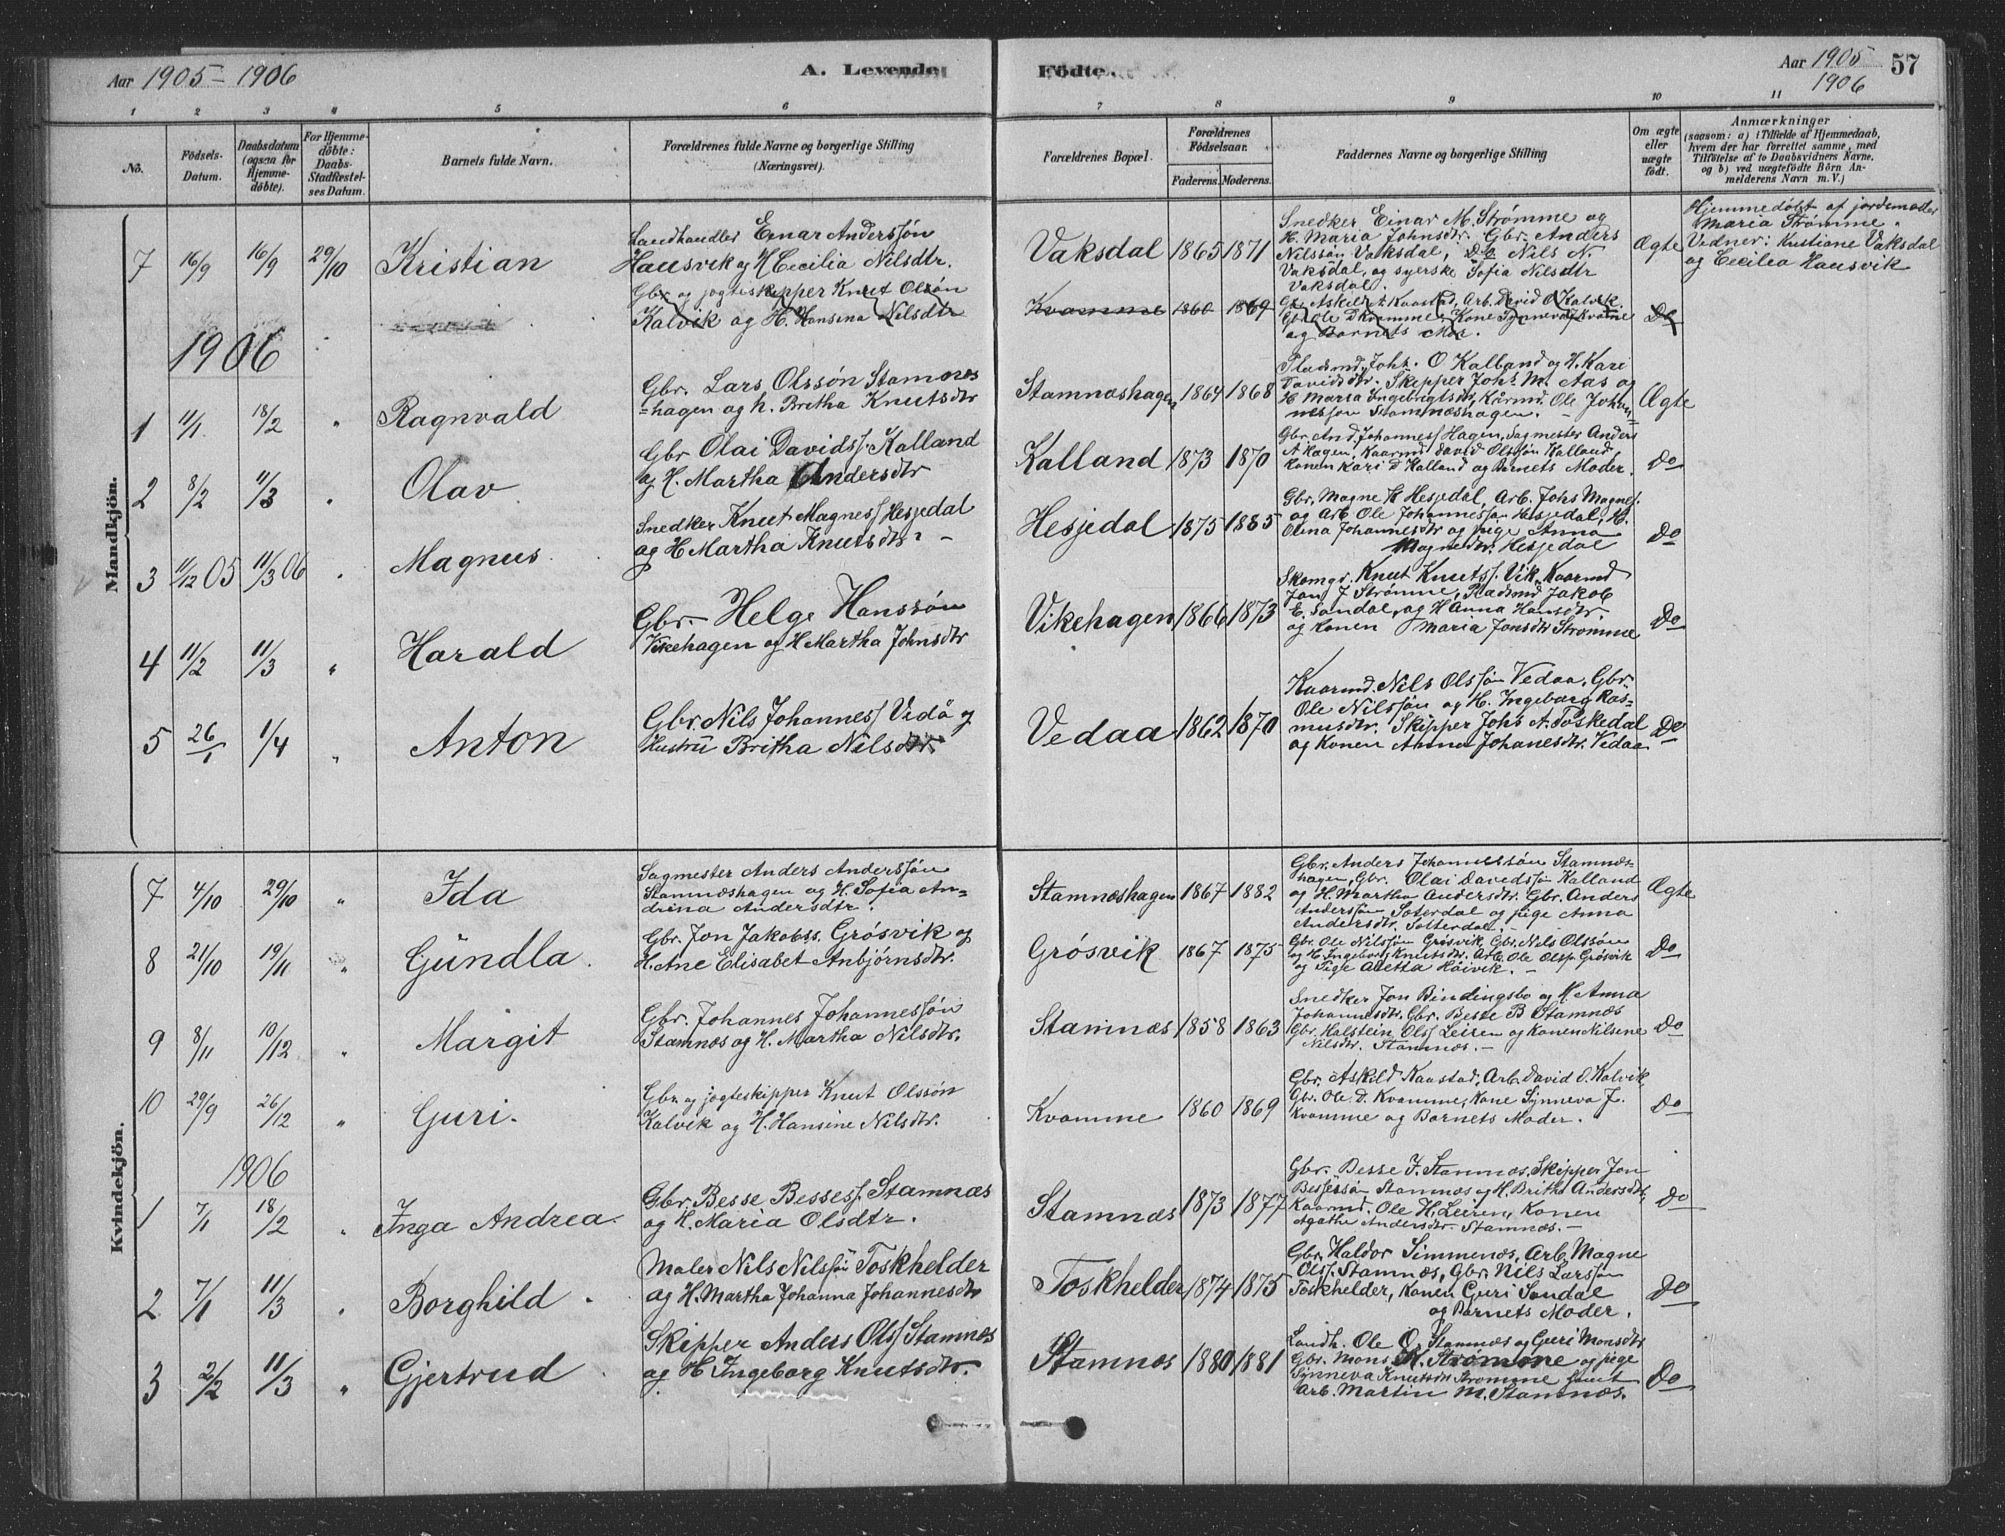 Aar 1905 - 1906
A. Levende
Födte.
Aar 1905
1906
57
1 2 3 4 5 6 7 8 9 10 11
No.
Födsels-Datum.
Daabsdatum (ogsaa for Hjemme-döbte).
For Hjemme-döbte: Daabs-Stadfæstel-ses Datum.
Barnets fulde Navn.
Forældrenes fulde Navne og borgerlige Stilling (Næringsvei).
Forældrenes Bopæl.
Forældrenes Födselsaar.
Faderens. Moderens.
Faddernes Navne og borgerlige Stilling
Om ægte eller uægte födt.
Anmærkninger
(saasom: a) i Tilfælde af Hjemmedaab, hvem der har forrettet samme, med Tilföielse af to Daabsvidners Navne, og b) ved uægtefödte Börn Anmelderens Navn m. V.)
Mandkjön.
7 16/9 16/9 29/10 Kristian
Landhandler Einar Anderssøn
Hausvik og H Cecilia Nilsdtr.
Vaksdal 1865 1871
Snedker Einar M. Strømme og
H. Maria Johnsdtr. Gbr. Anders
Nilsson Vaksdal, Do Nils N.
Vaksdal, og syerske Sofia Nilsdtr
Vaksdal.
Ægte
Hjemmedöbt af jordemoder
Maria Strømme.
Vidner: Kristiane Vaksdal
og Cecilia Hausvik
Gbr og jagteskipper Knut Olsøn
Kalvik og H. Hansina Nilsdtr
Kvamme 1860 1869
Gbr Askild A Kaastad, Arb. David O Kalvik,
Gbr Ole D Kvamme, Kone Synneva J Kvamme
og Barnets Mor.
Do
1906
1 11/1 18/2 " Ragnvald
Gbr. Lars Olssøn Stamnæs
=hagen og h. Britha Knutsdtr
Stamnæshagen 1864 1868
Pladsmd. Johs. O Kalland og H. Kari
Davidsdtr. Skipper Johs M. Aas og
H Maria Ingebrigtsdtr, Kårmd. Ole Johan=
nessøn Stamnæshagen.
Ægte
2 8/2 11/3 " Olav
Gbr Olai Davids. Kalland
og H. Martha Andersdtr
Kalland 1873 1870
Gbr. And. Johannes. Hagen, Sagmester Anders
A Hagen, Kaarmd David Olssøn Kalland,
Konen Kari D Kalland og Barnets Moder.
Do
3 11/12 05 11/3 06 " Magnus
Snedker Knut Magness. Hesjedal
og H Martha Knutsdtr. -
Hesjedal 1875 1885
Gbr. Magne K Hesjedal, Arb. Johs Magnes.
og Arb Ole Johannessøn Hesjedal, H.
Olina Johannesdtr og pige Anna
Magnesdtr. Hesjedal
Do
4 11/2 11/3 " Harald
Gbr. Helge Hanssøn
Vikehagen og H Martha Johnsdtr
Vikehagen 1866 1873
Skomgr. Knut Knuts. Vik, Kaarmd
Jon J Strømme, Pladsmd Jakob
E. Sandal, og H Anna Hansdtr
og Konen Maria Jonsdtr Strømme
Do
5 26/1 1/4 " Anton
Gbr. Nils Johannes. Vedå og
Hustru Britha Nilsdtr.
Vedaa 1862 1870
Kaarmd. Nils Olssøn Vedaa, Gbr.
Ole Nilssøn og H. Ingeborg Ras=
musdtr. Skipper Johs A. Toskedal
og Konen Anna Johanesdtr. Vedaa
Do
Kvindekjön.
7 4/10 29/10 " Ida
Sagmester Anders Anderssøn
Stamnæshagen og H. Sofia An=
drina Andersdtr.
Stamnæshagen 1867 1882
Gbr. Anders Johannessøn Stamnæs=
hagen, Gbr. Olai Davidssøn Kalland
og H. Martha Andersdtr. Gbr. Anders
Anderssøn Soterdal og pige Anna
Andersdtr. Solterdal. -
Ægte
8 21/10 19/11 " Gundla
Gbr. Jon Jakobss. Grösvik og
H. Ane Elisabet Anbjørnsdtr.
Grösvik 1867 1875
Gbr. Ole Nilssøn Grösvik, Gbr. Nils Olssøn
og H. Ingeborg Knutsdtr. Arb. Ole Olss. Grösvik
og Pige Aletta Höivik. -
Do
9 8/11 10/12 " Margit
Gbr. Johannes Johannessøn
Stamnæs og H. Martha Nilsdtr.
Stamnæs 1858 1863
Snedker Jon Bindingsbo og H. Anna
Johannesdtr. Gbr. Besse B Stamnæs
Gbr. Halstein Ols. Leiren og Konen Nilsine
Nilsdtr. Stamnæs. -
Do
10 29/9 26/12 " Guri.
Gbr. og jagteskipper Knut Olssøn
Kalvik og H. Hansine Nilsdtr.
Kvamme 1860 1869
Gbr. Askild Kaastad, Arb. David O. Kalvik,
Gbr. Ole D. Kvamme, Kone Synneva J.
Kvamme og Barnets Moder.
Do
1906
1 7/1 18/2 " Inga Andrea.
Gbr. Besse Besses. Stamnæs
og H. Maria Olsdtr.
Stamnæs 1873 1877
Gbr. Besse J. Stamnæs, Skipper Jon
Bessesøn Stamnæs og H. Britha Andersdtr,
Kaarmd. Ole H. Leiren, Konen
Agathe Andersdtr. Stamnæs. -
Do
2 7/1 11/3 " Borghild
Maler Nils Nilssøn Toskhelder
og H. Martha Johanna Johannesdtr
Toskhelder 1874 1875
Gbr. Haldor Simmenæs, Arb. Magne
Ols. Stamnæs, Gbr. Nils Larssøn
Toskhelder, Konen Guri Sandal
og Barnets Moder.
Do
3 2/2 11/3 " Gjertrud
Skipper Anders Ols. Stamnæs
og H. Ingeborg Knutsdtr.
Stamnæs 1880 1881
Landh. Ole O. Stamnæs og Guri Monsdtr
Gbr. Mons K. Strømme og pige
Synneva Knutsdtr Strømme samt
Arb. Martin M. Stamnæs.
Do